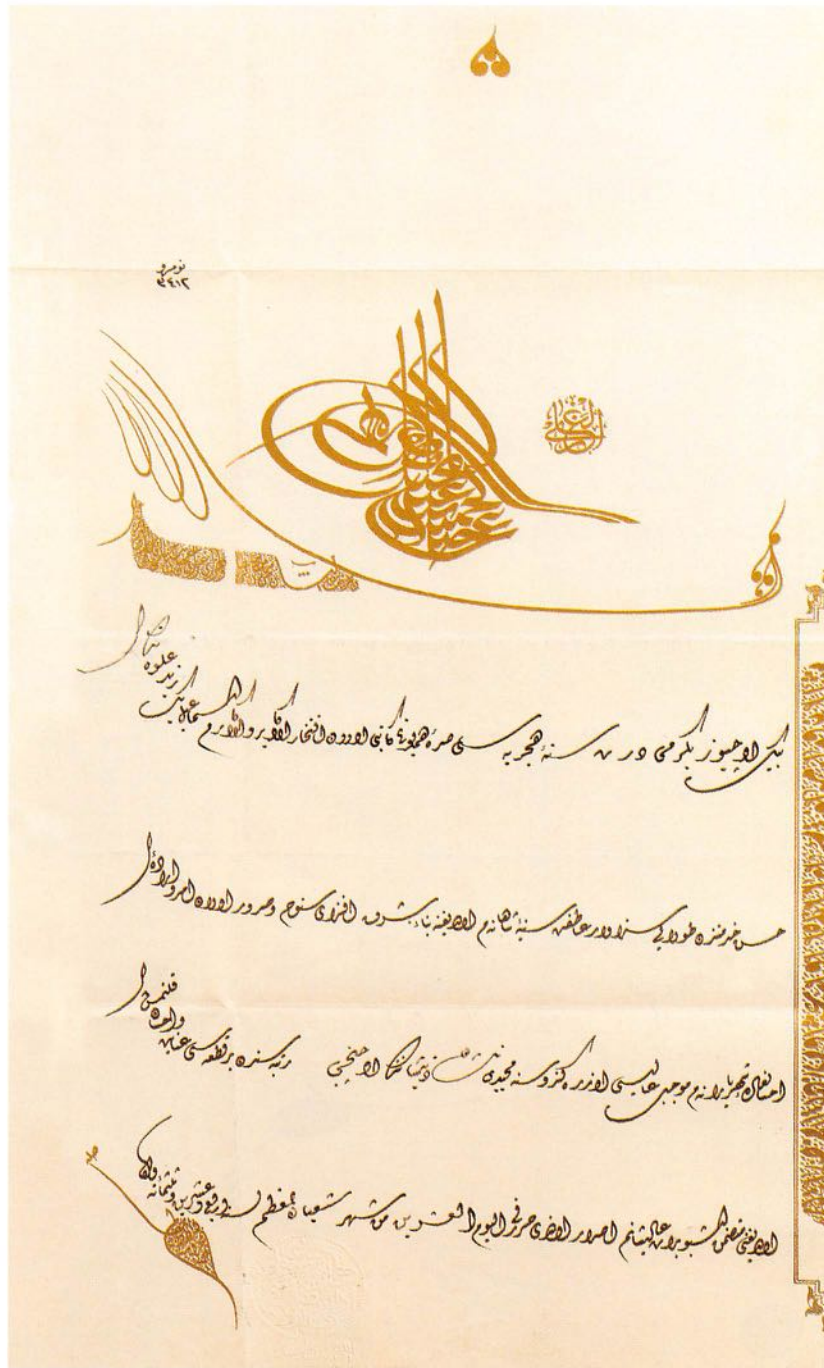 نومرو
٣٤١٢
الغازى
بيك اوچيوز يكرمى درت سنهٔ هجريه سى صرهٔ همايونم كاتبى اولان افتخار الاكابر والاكارم اسماعيل بك زيد علوه نك
حسن خدمتندن طولايى سزاوار عاطفت سنيهٔ شاهانه م اولديغنه بناء شرف افزاى سنوح وصدور اولان امر وارادهٔ
شهريارانه م موجب عاليسى اوزره كندوسنه مجيدى نشان ذيشاننك اوچنجى رتبه سندن بر قطعه سى عنايت واحسان قلنمش
اولديغنى متضمن اشبو برات عاليشانم اصدار اولندى حرر فى اليوم العشرين من شهر شعبان المعظم لسنة اربع وعشرين وثلثمائة والف